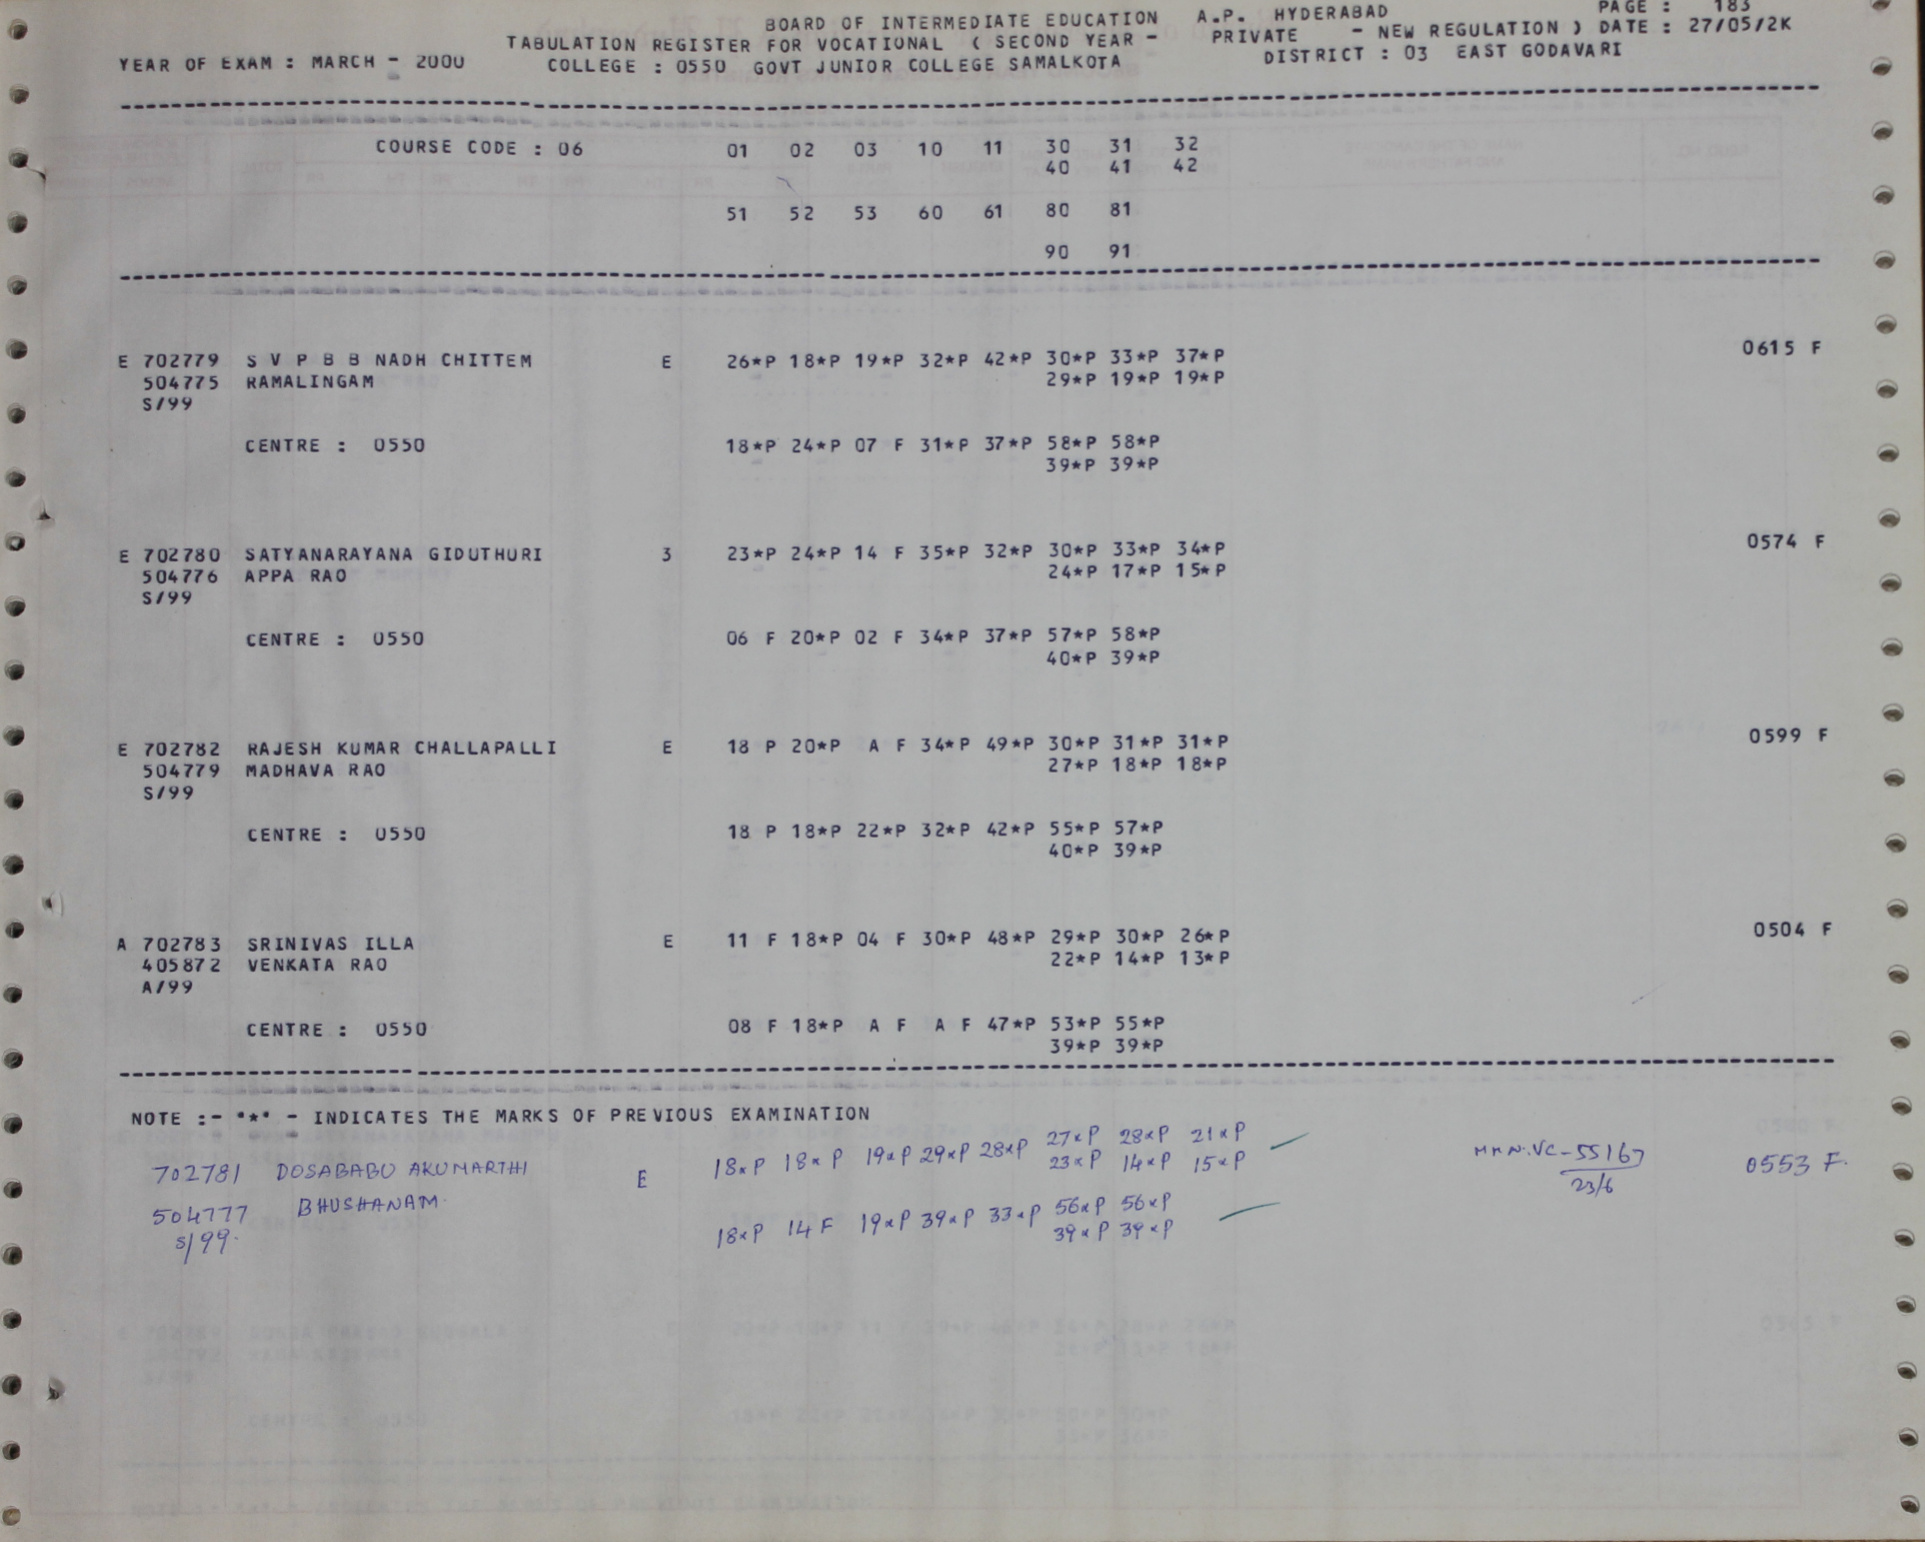 BOARD OF INTERMEDIATE EDUCATION A.P. HYDERABAD PAGE : 183
TABULATION REGISTER FOR VOCATIONAL ( SECOND YEAR - PRIVATE - NEW REGULATION ) DATE : 27/05/2K
YEAR OF EXAM : MARCH - 2000 COLLEGE : 0550 GOVT JUNIOR COLLEGE SAMALKOTA DISTRICT : 03 EAST GODAVARI
COURSE CODE : 06 01 02 03 10 11 30 31 32
40 41 42
51 52 53 60 61 80 81
90 91
E 702779 S V P B B NADH CHITTEM E 26*P 18*P 19*P 32*P 42*P 30*P 33*P 37*P 0615 F
504775 RAMALINGAM 29*P 19*P 19*P
S/99
CENTRE : 0550 18*P 24*P 07 F 31*P 37*P 58*P 58*P
39*P 39*P
E 702780 SATYANARAYANA GIDUTHURI 3 23*P 24*P 14 F 35*P 32*P 30*P 33*P 34*P 0574 F
504776 APPA RAO 24*P 17*P 15*P
S/99
CENTRE : 0550 06 F 20*P 02 F 34*P 37*P 57*P 58*P
40*P 39*P
E 702782 RAJESH KUMAR CHALLAPALLI E 18 P 20*P A F 34*P 49*P 30*P 31*P 31*P 0599 F
504779 MADHAVA RAO 27*P 18*P 18*P
S/99
CENTRE : 0550 18 P 18*P 22*P 32*P 42*P 55*P 57*P
40*P 39*P
A 702783 SRINIVAS ILLA E 11 F 18*P 04 F 30*P 48*P 29*P 30*P 26*P 0504 F
405872 VENKATA RAO 22*P 14*P 13*P
A/99
CENTRE : 0550 08 F 18*P A F A F 47*P 53*P 55*P
39*P 39*P
NOTE :- "*" - INDICATES THE MARKS OF PREVIOUS EXAMINATION
702781 DOSABABU AKUMARTHI E 18*P 18*P 19*P 29*P 28*P 27*P 28*P 21*P 0553 F.
23*P 14*P 15*P
504777 BHUSHANAM.
S/99. 18*P 14 F 19*P 39*P 33*P 56*P 56*P
39*P 39*P
23/6